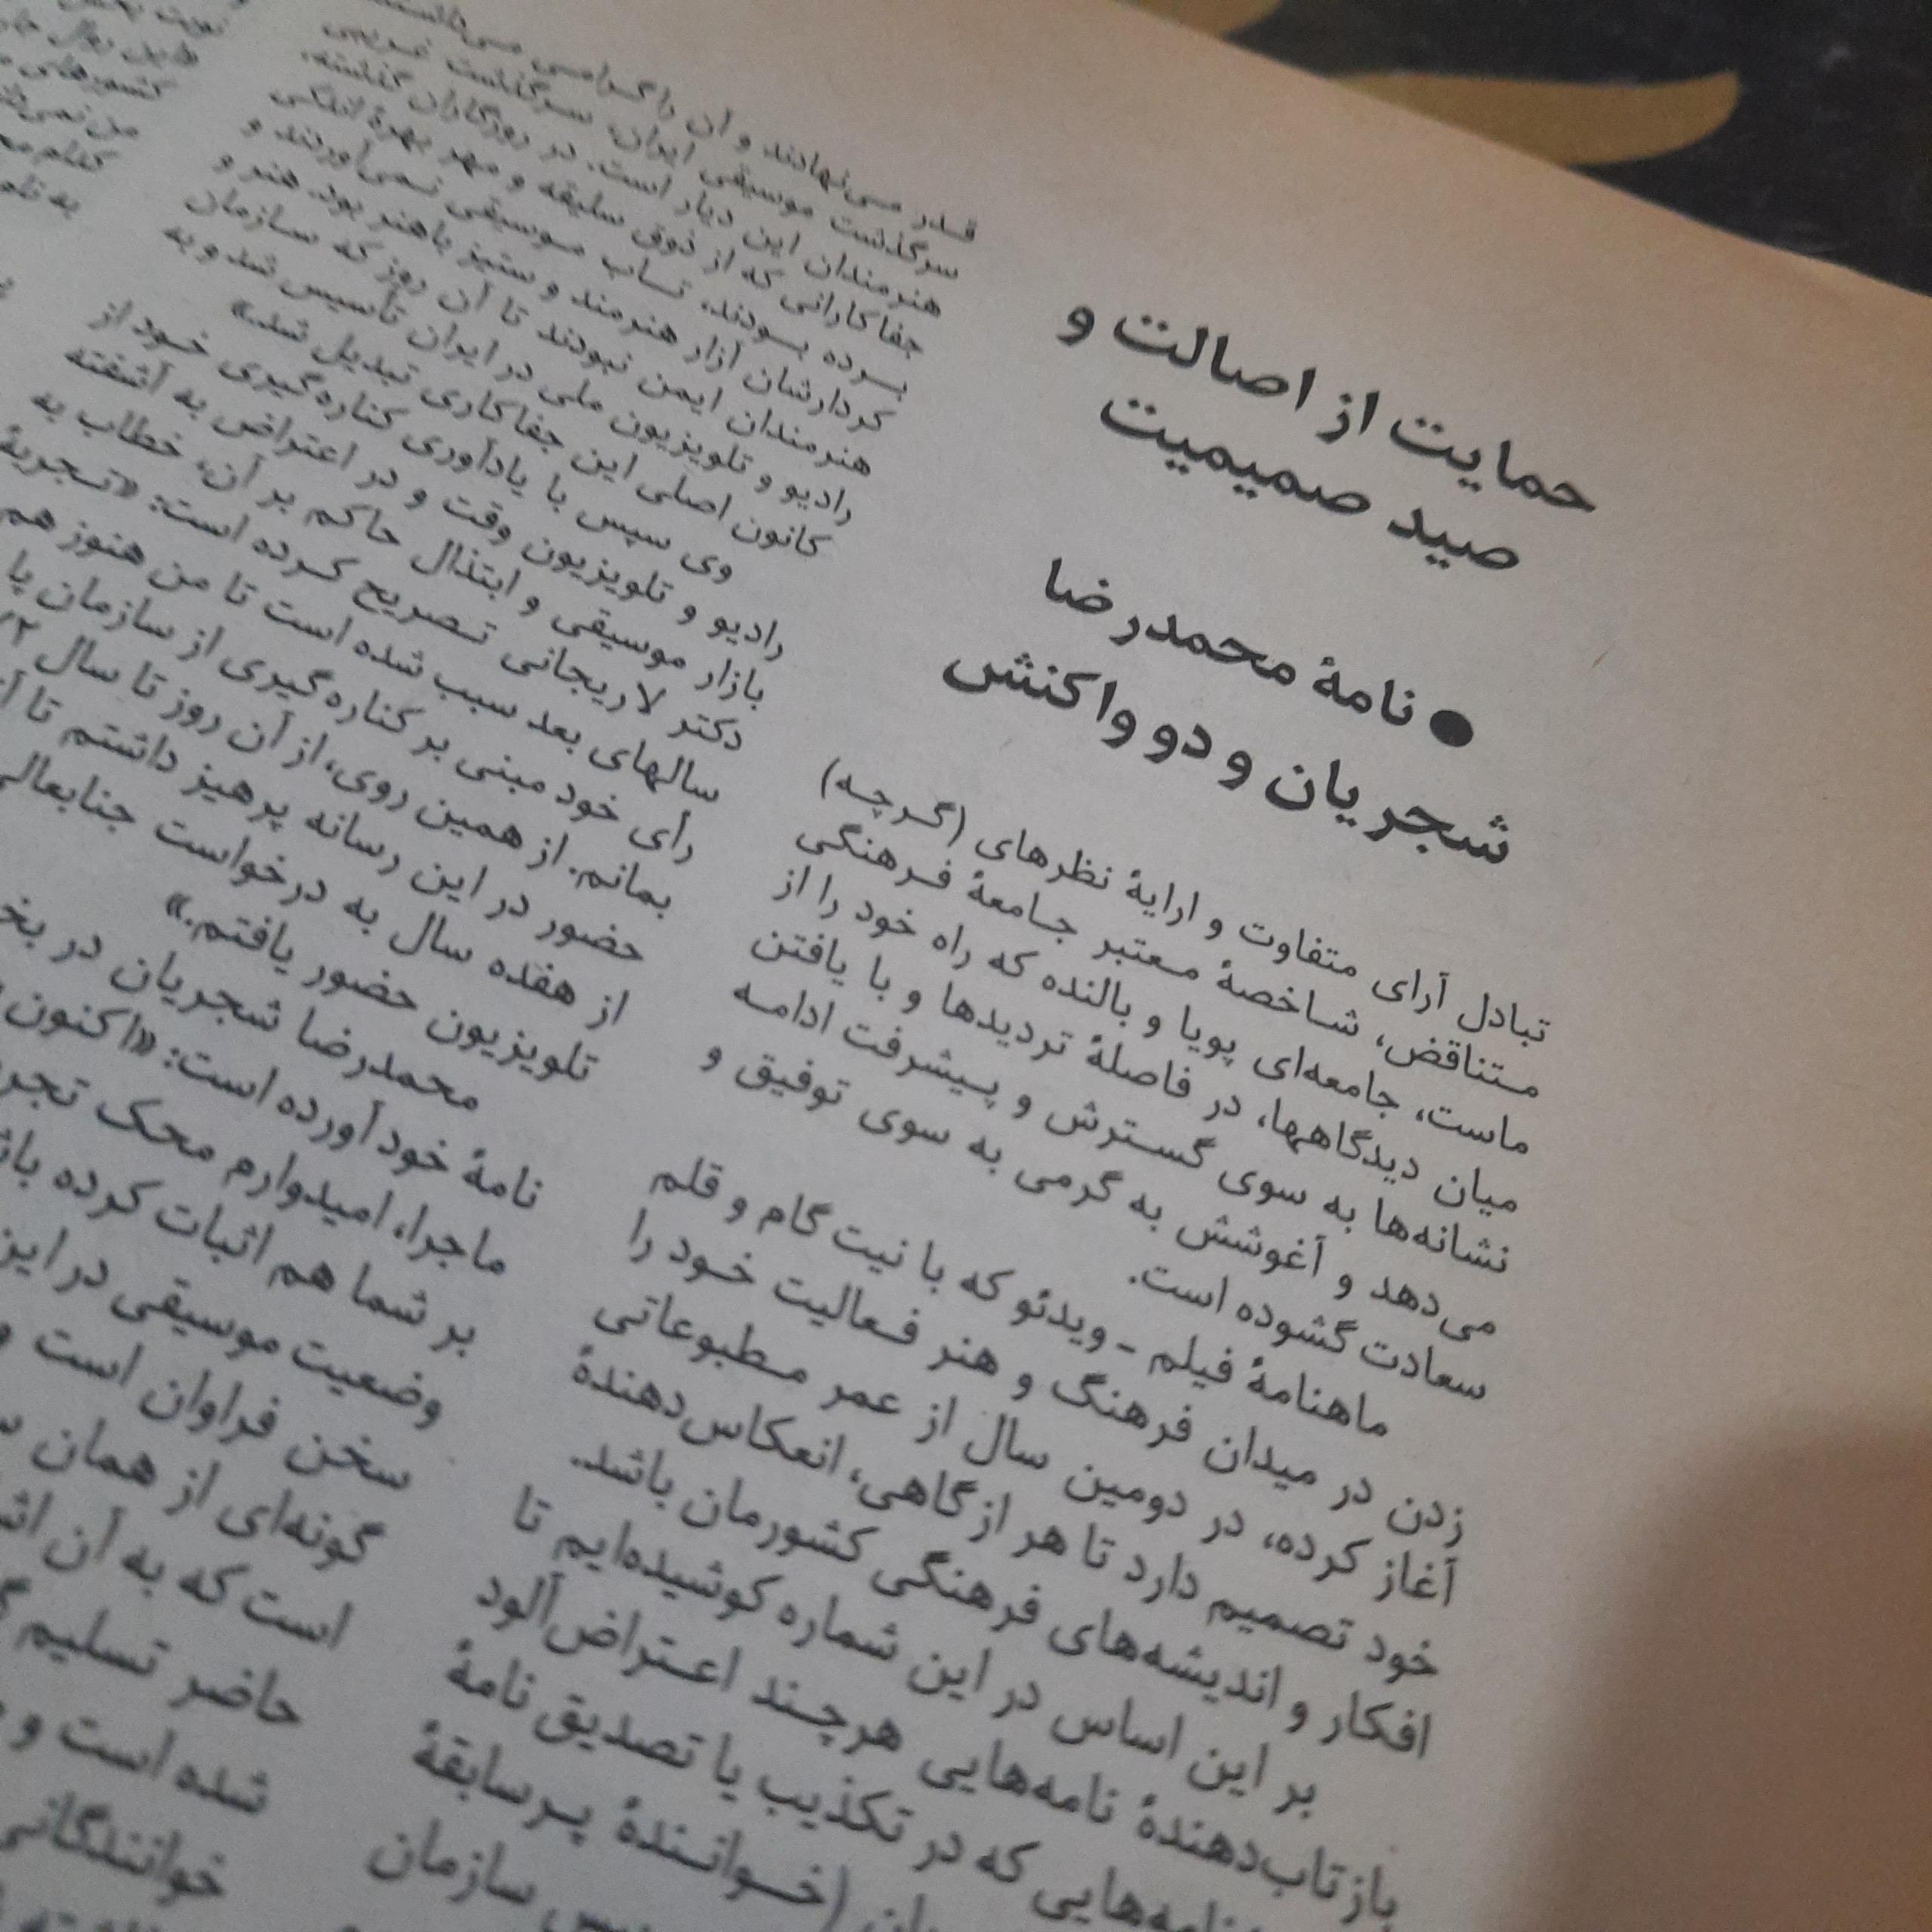 حمایت از اصالت و
صید صمیمیت
● نامهٔ محمدرضا
شجریان و دو واکنش
تبادل آرای متفاوت و ارایهٔ نظرهای (گرچه)
متناقض، شاخصهٔ معتبر جامعهٔ فرهنگی
ماست، جامعه‌ای پویا و بالنده که راه خود را از
میان دیدگاهها، در فاصلهٔ تردیدها و با یافتن
نشانه‌ها به سوی گسترش و پیشرفت ادامه
می‌دهد و آغوشش به گرمی به سوی توفیق و
سعادت گشوده است.
ماهنامهٔ فیلم - ویدئو که با نیت گام و قلم
زدن در میدان فرهنگ و هنر فعالیت خود را
آغاز کرده، در دومین سال از عمر مطبوعاتی
خود تصمیم دارد تا هر از گاهی، انعکاس‌دهندهٔ
افکار و اندیشه‌های فرهنگی کشورمان باشد.
بر این اساس در این شماره کوشیده‌ایم تا
بازتاب‌دهندهٔ نامه‌هایی هرچند اعتراض‌آلود
نامه‌هایی که در تکذیب یا تصدیق نامهٔ
(خوانندهٔ پرسابقهٔ
سازمان
قدر می‌نهادند و آن را گرامی
سرگذشت موسیقی ایران، سرگذشت غریبی
هنرمندان این دیار است. در روزگاران گذشته،
جفاکارانی که از ذوق سلیقه و مهر بهرهٔ اندکی
برده بودند، تاب موسیقی نمی‌آوردند و
کردارشان آزار هنرمند و ستیز با هنر بود. هنر و
هنرمندان ایمن نبودند تا آن روز که سازمان
رادیو و تلویزیون ملی در ایران تأسیس شد و به
کانون اصلی این جفاکاری تبدیل شد.»
وی سپس با یادآوری کناره‌گیری خود از
رادیو و تلویزیون وقت و در اعتراض به آشفته
بازار موسیقی و ابتذال حاکم بر آن، خطاب به
دکتر لاریجانی تصریح کرده است: «تجربهٔ
سالهای بعد سبب شده است تا من هنوز هم
رأی خود مبنی بر کناره‌گیری از سازمان پا
بمانم. از همین روی، از آن روز تا سال
حضور در این رسانه پرهیز داشتم تا
از هفده سال به درخواست جنابعالی
تلویزیون حضور یافتم.»
محمدرضا شجریان در
نامهٔ خود آورده است: «اکنون
ماجرا، امیدوارم محک
بر شما هم اثبات کرده
وضعیت موسیقی در
سخن فراوان است و
گونه‌ای از همان
است که به آن
حاضر تسلیم
شده است و
خوانندگانی